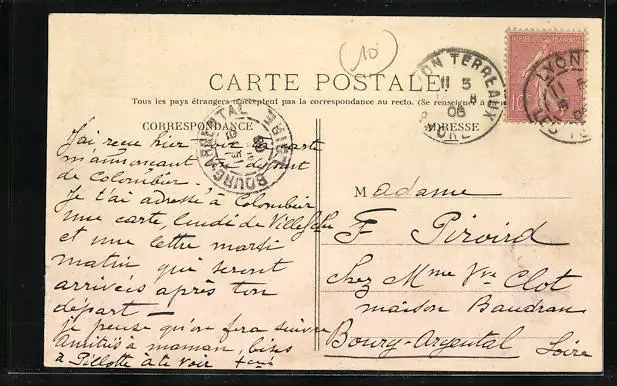 (10)
CARTE POSTALE
Tous les pays étrangers n'acceptent pas la correspondance au recto. (Se renseigner à la
CORRESPONDANCE
ADRESSE
LYON TERREAUX
11 5
05
RHONE
LYON
BOURG-ARGENTAL
LOIRE
REPUBLIQUE FRANCAISE
J'ai reçu hier soir ta carte
m'annonçant ton départ
de Colombier.
Je t'ai adressé à Colombier
une carte, lundi de
et une lettre mardi
matin qui seront
arrivées après ton
départ —
je pense qu'on fera suivre
Amitiés à maman, bises
à te voir
Madame
F Piroird
chez Mme Vve Clot
maison Baudran
Bourg-Argental
Loire